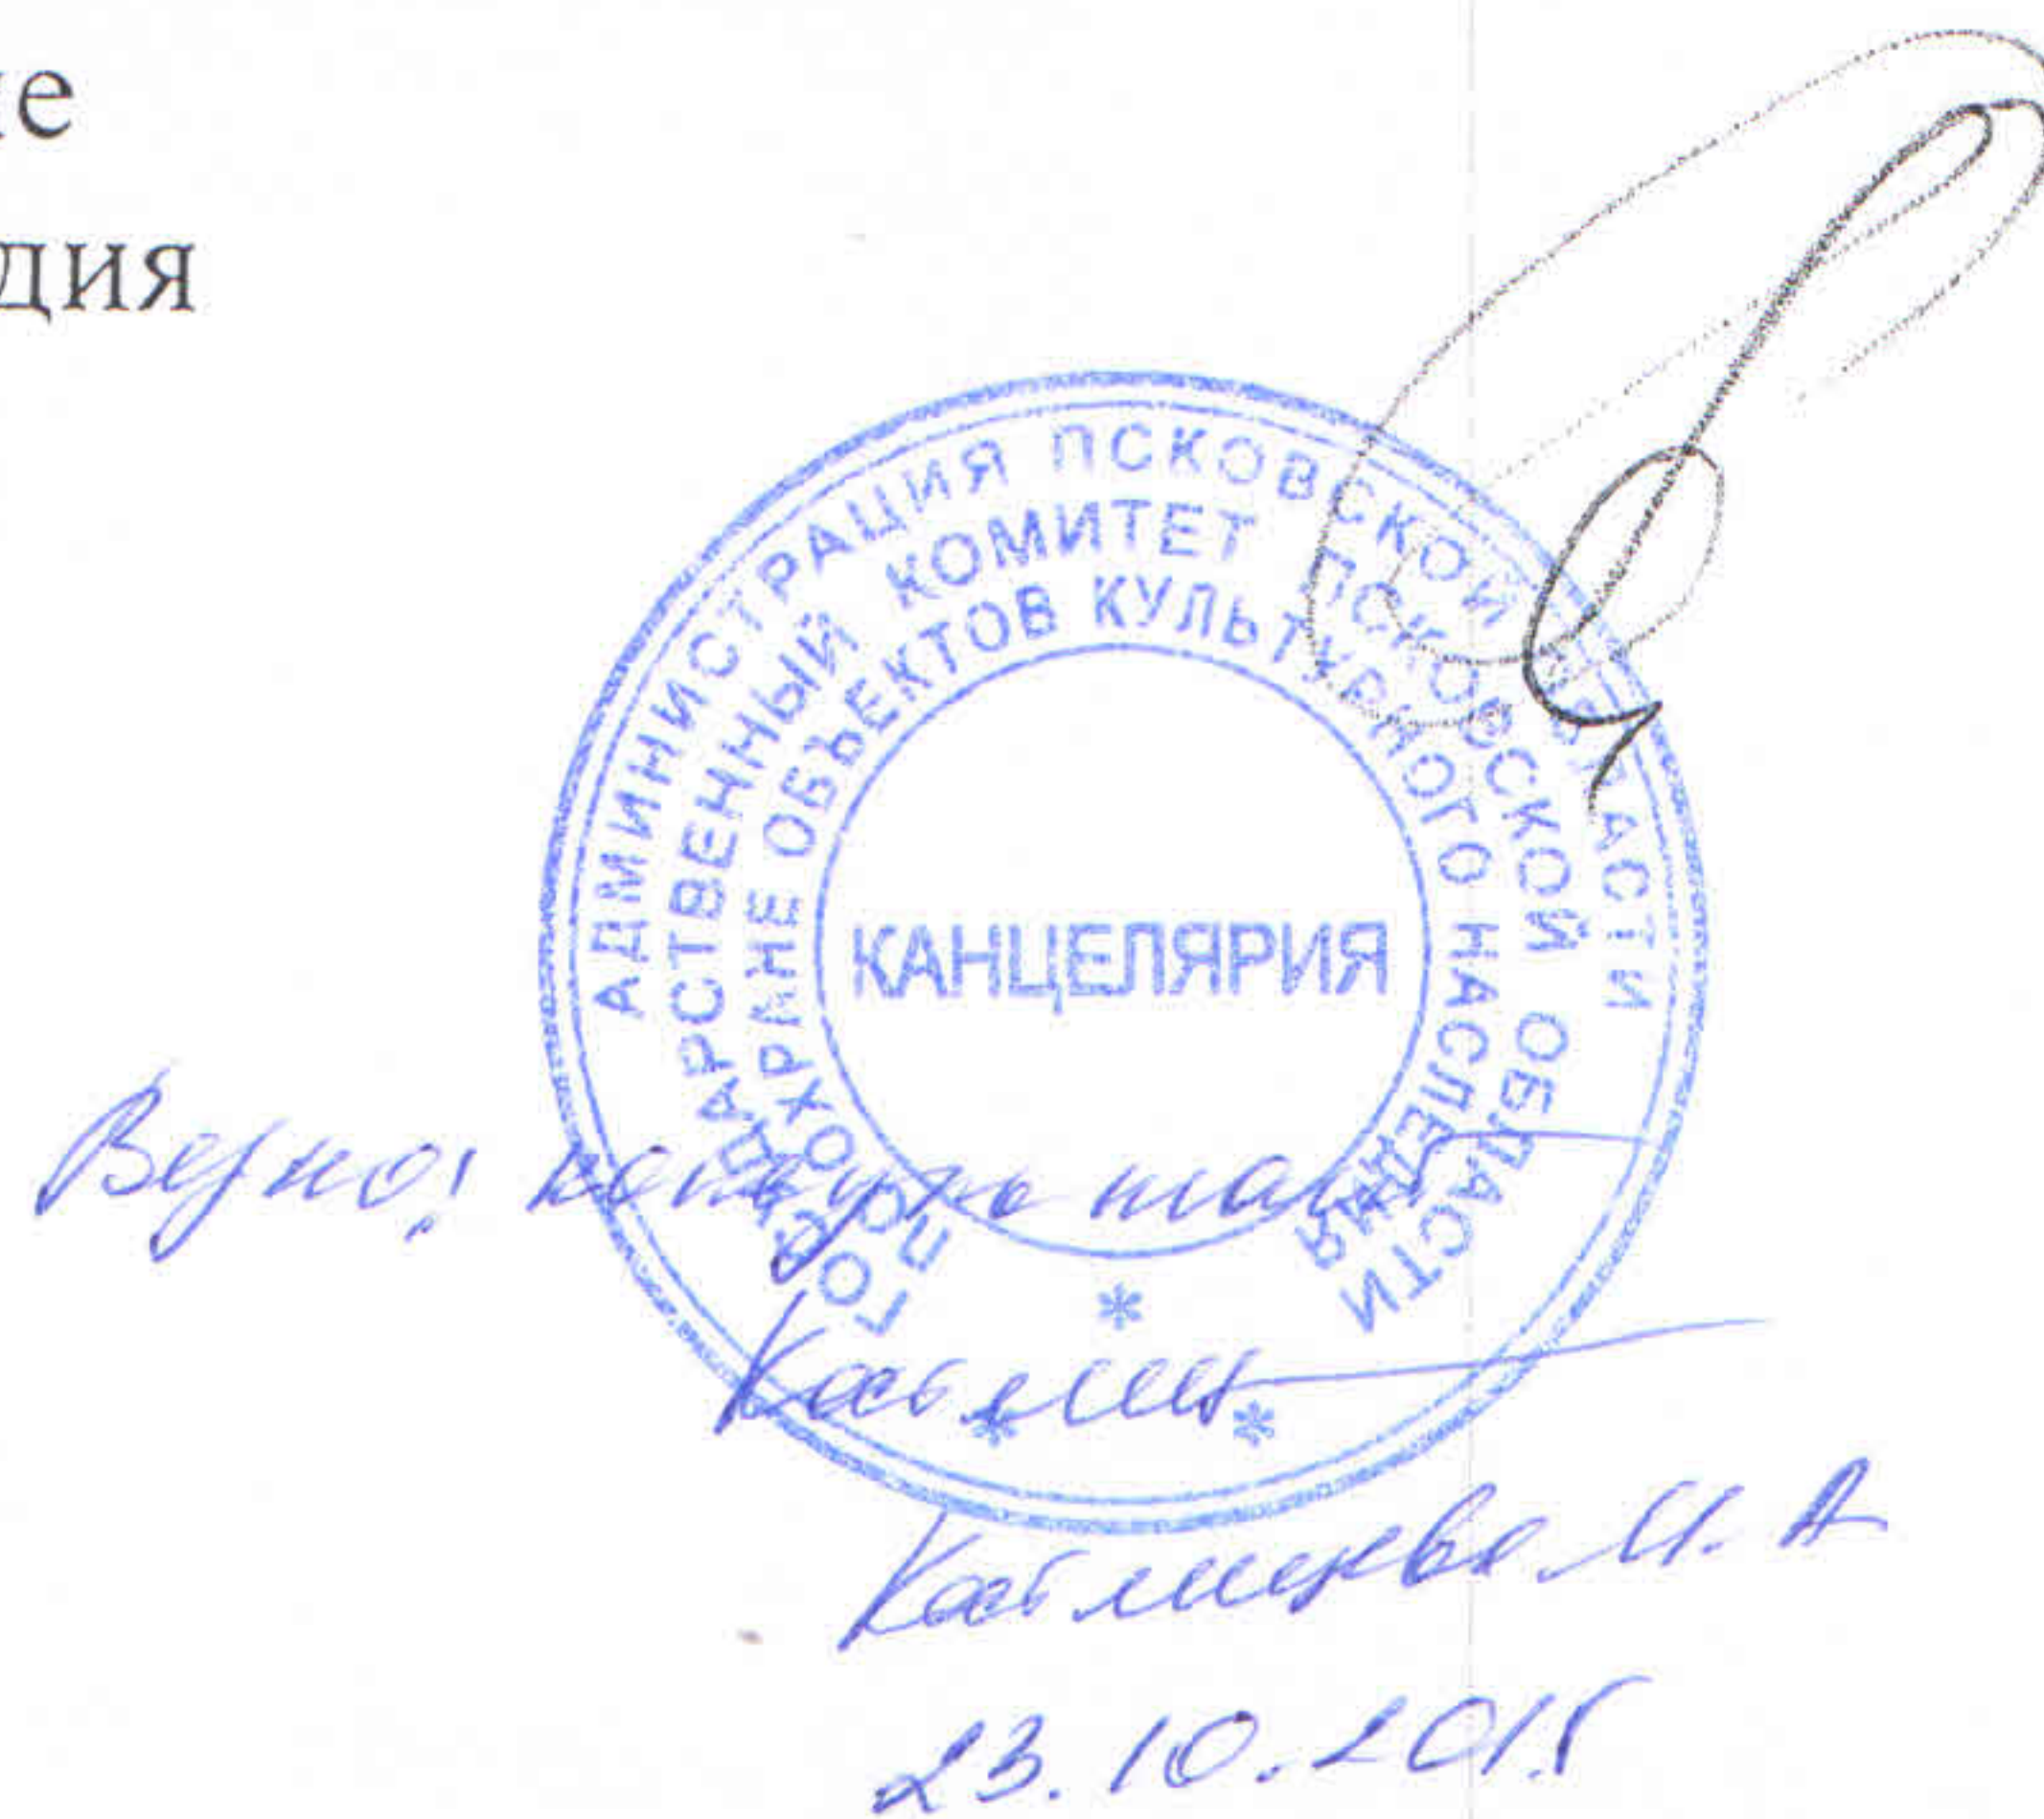 ие
дия
АДМИНИСТРАЦИЯ ПСКОВСКОЙ ОБЛАСТИ
ГОСУДАРСТВЕННЫЙ КОМИТЕТ ПСКОВСКОЙ ОБЛАСТИ
ПО ОХРАНЕ ОБЪЕКТОВ КУЛЬТУРНОГО НАСЛЕДИЯ
КАНЦЕЛЯРИЯ
Верно!
И. А
23.10.2015